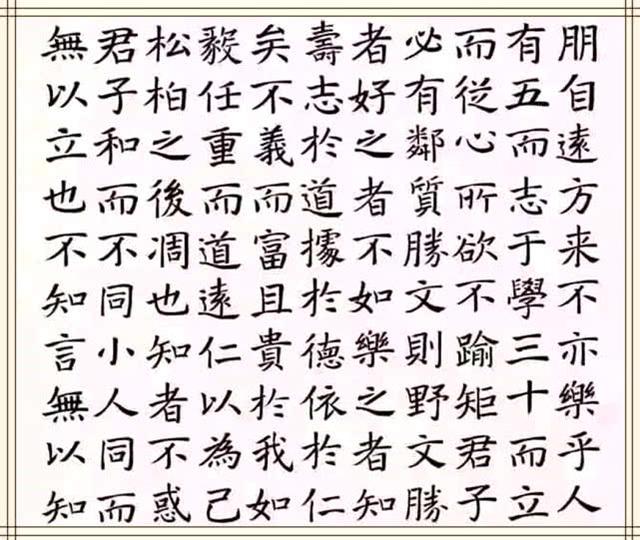 朋自遠方来不亦樂乎人
有五而志于學三十而立
而従心所欲不踰矩君子
必有鄰質勝文則野文勝
者好之者不如樂之者知
壽志於道據於德依於仁
矣不義而富且貴於我如
毅任重而道遠仁以為己
松柏之後凋也知者不惑
君子和而不同小人同而
無以立也不知言無以知